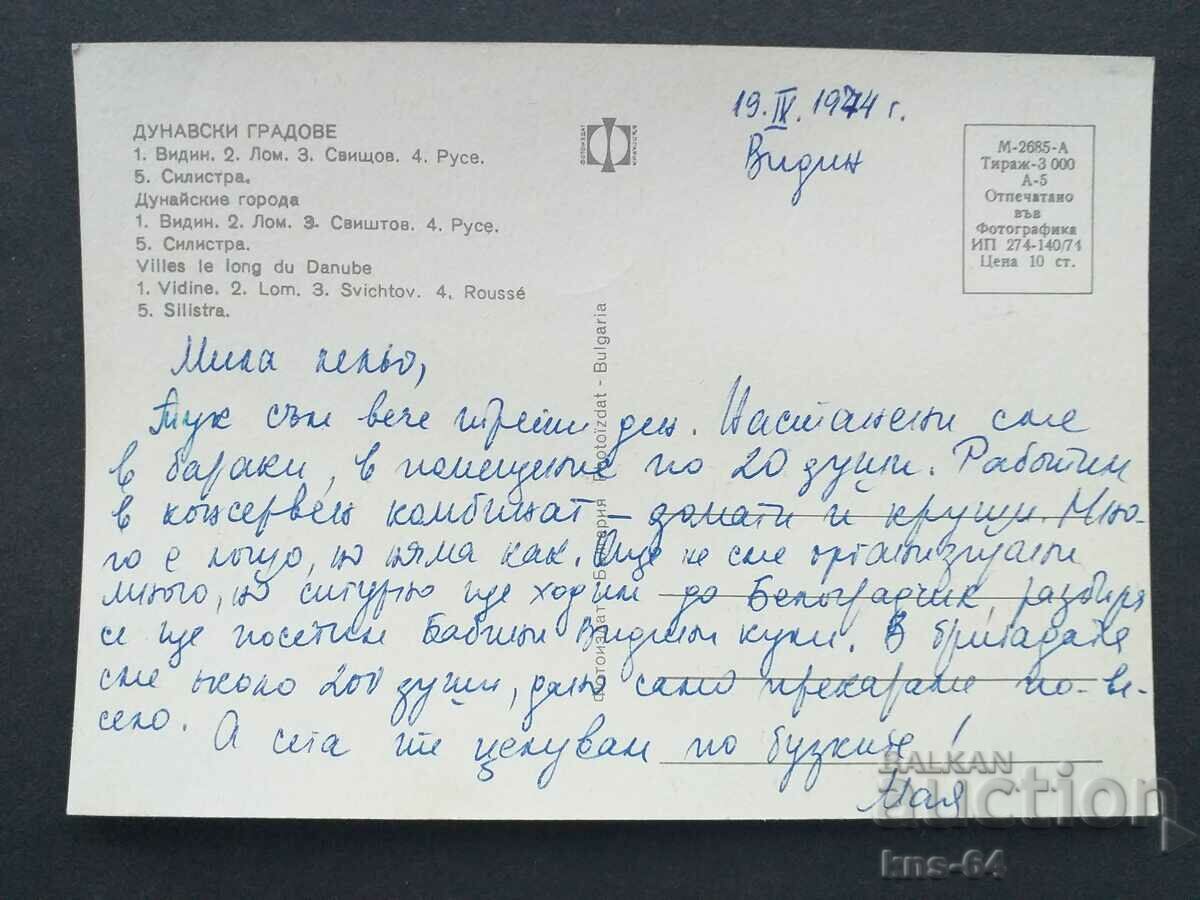 ДУНАВСКИ ГРАДОВЕ
1. Видин. 2. Лом. 3. Свищов. 4. Русе.
5. Силистра.
Дунайские города
1. Видин. 2. Лом. 3. Свиштов. 4. Русе.
5. Силистра.
Villes le long du Danube
1. Vidine. 2. Lom. 3. Svichtov. 4. Roussé
5. Silistra.
ФОТОИЗДАТ
Фотоиздат България Fotoïzdat - Bulgaria
19. IX. 1974 г.
Видин
М-2685-А
Тираж-3 000
А-5
Отпечатано
във
Фотографика
ИП 274-140/74
Цена 10 ст.
Мила лельо,
Тук съм вече трети ден. Настанени сме
в бараки, в помещение по 20 души. Работим
в консервен комбинат – домати и круши. Мно-
го е лошо, но няма как. Още не сме организирали
много, но сигурно ще ходим до Белоградчик, разбира
се ще посетим Бабини Видини кули. В бригадата
сме около 200 души, дано само прекараме по-ве-
село. А сега те целувам по бузките!
Мая
BALKAN
auction
kns-64